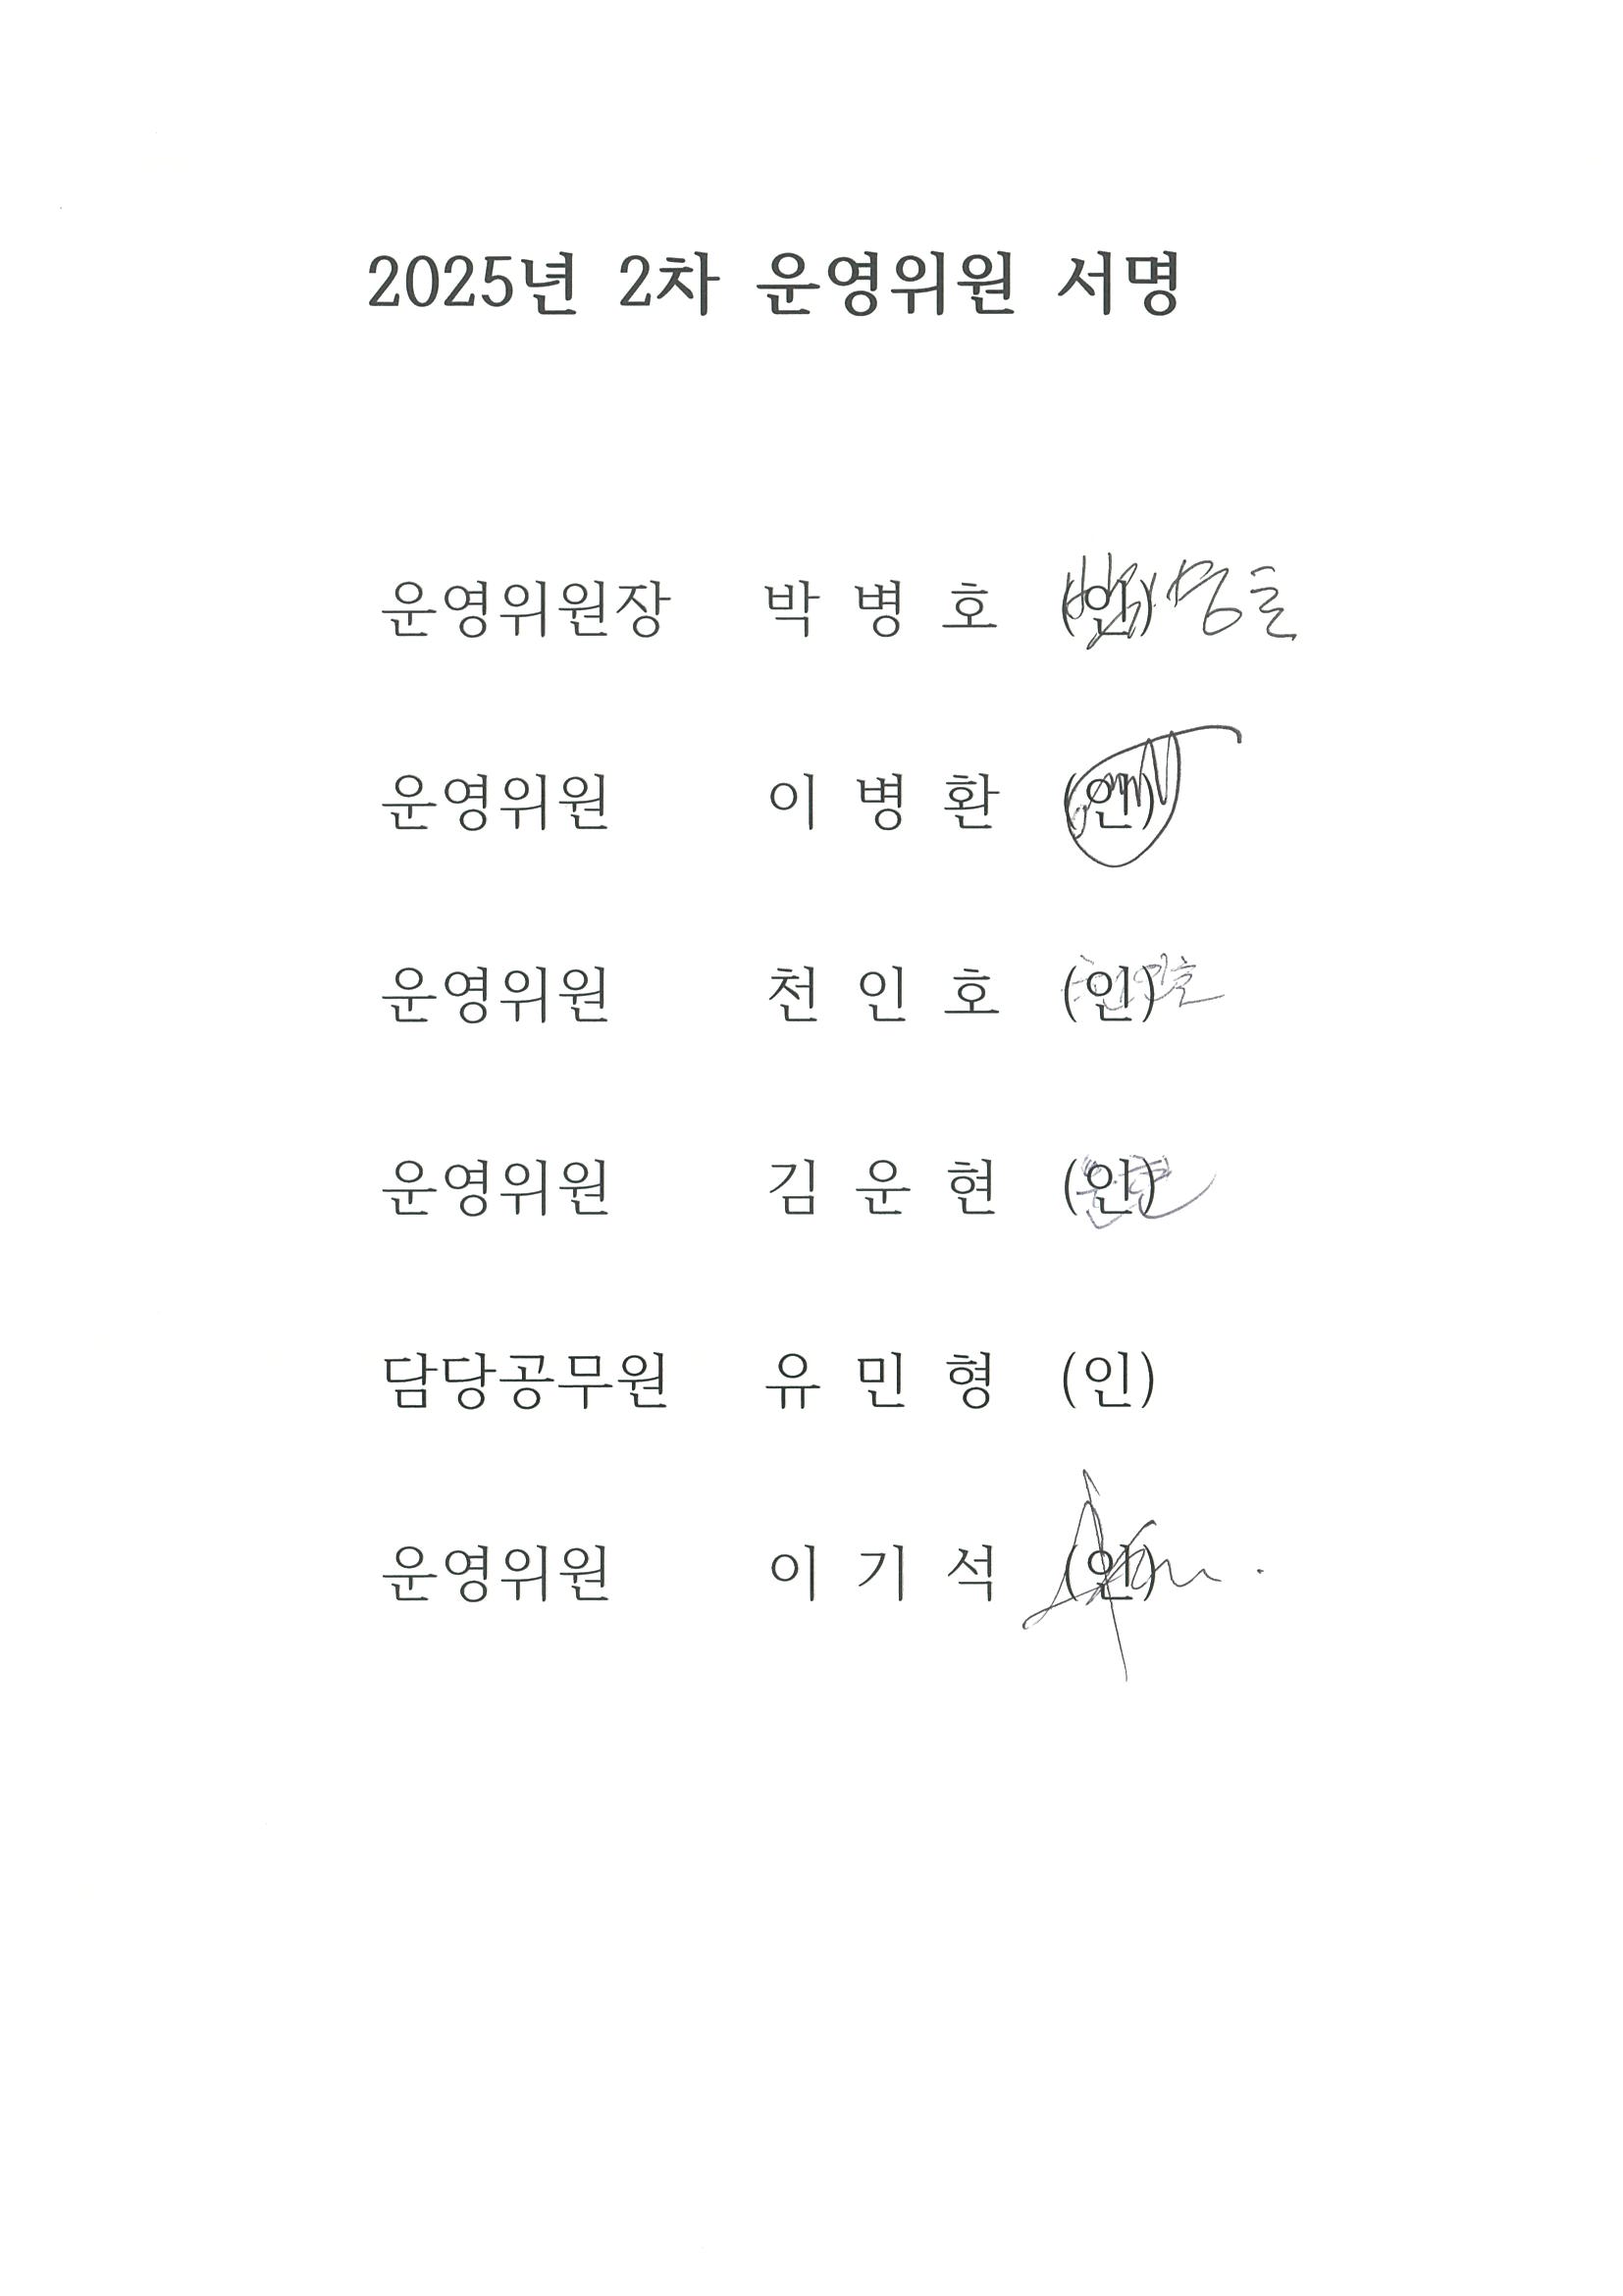 2025년 2차 운영위원 서명
운영위원장 박 병 호 (인)
운영위원 이 병 환 (인)
운영위원 천 인 호 (인)
운영위원 김 운 현 (인)
담당공무원 유 민 형 (인)
운영위원 이 기 석 (인)